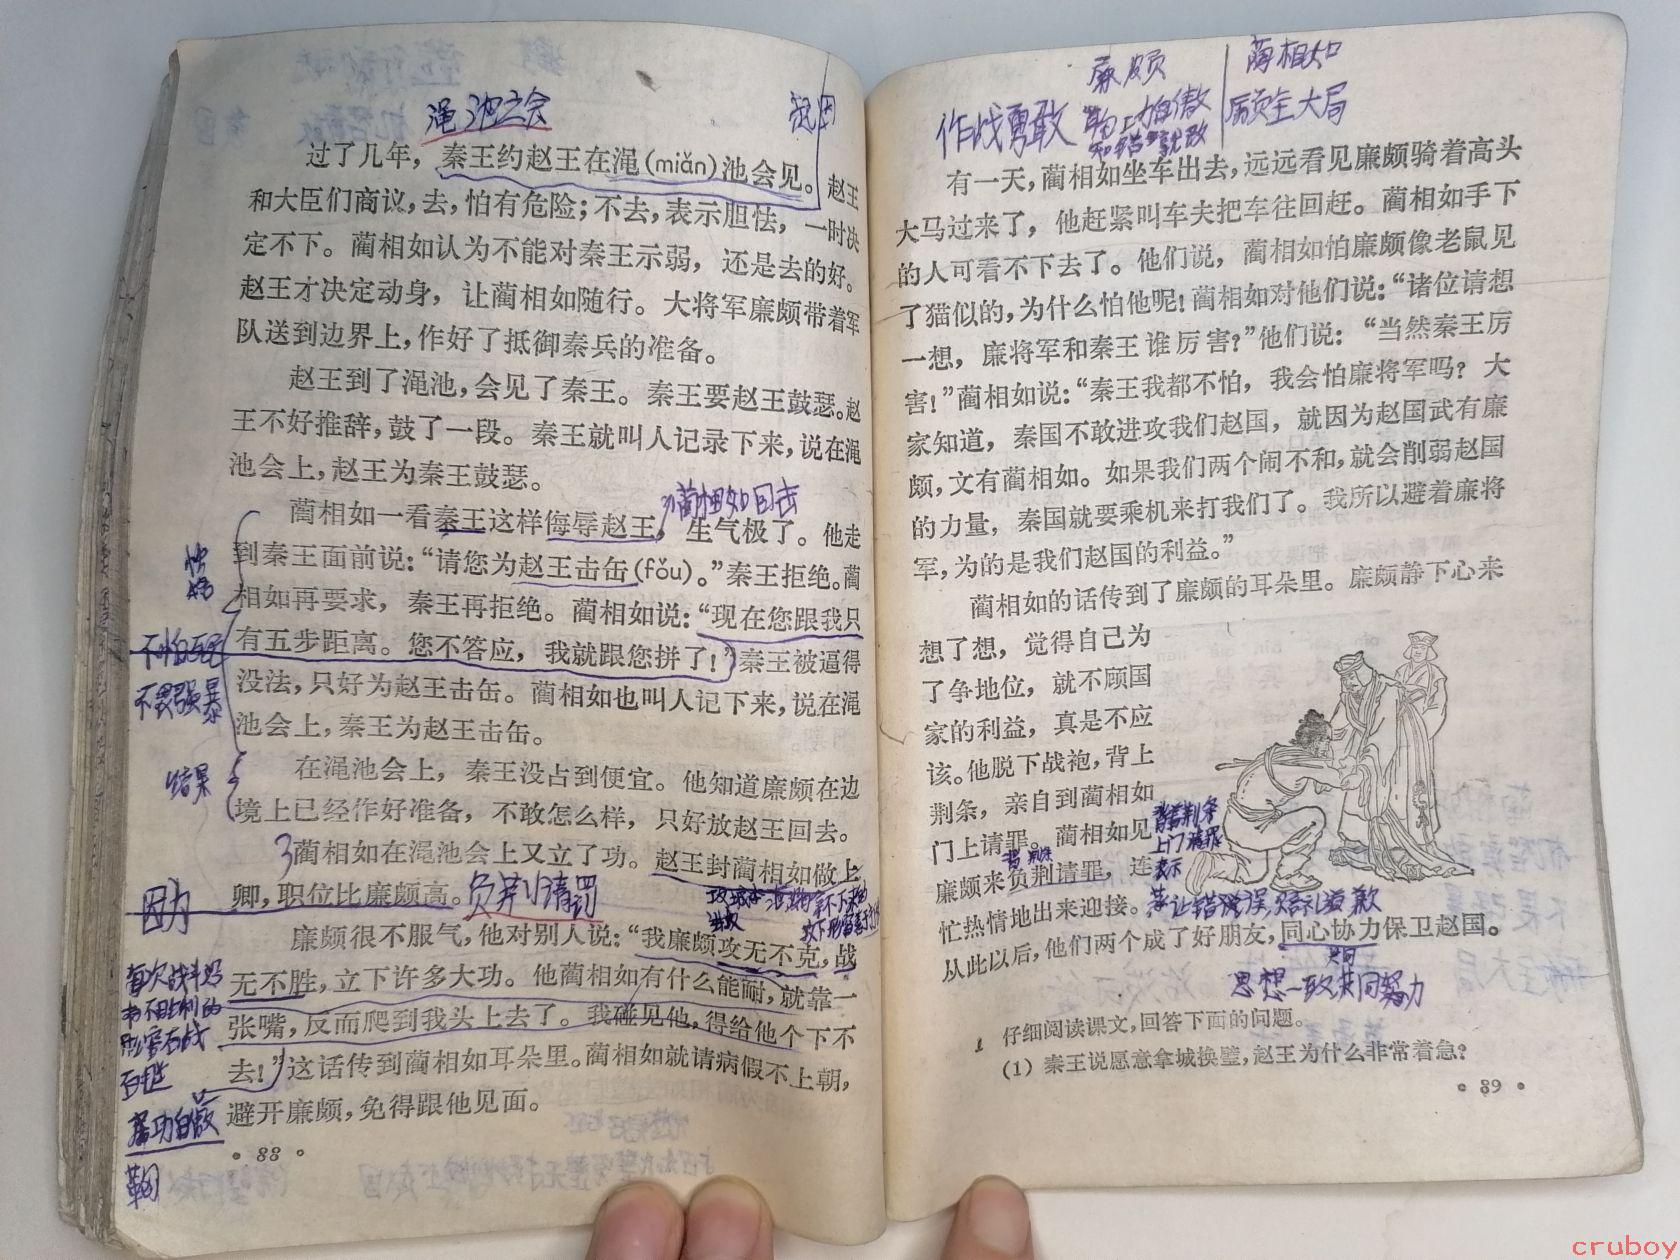 渑池之会
起因
过了几年，秦王约赵王在渑(miǎn)池会见。赵王
和大臣们商议，去，怕有危险；不去，表示胆怯，一时决
定不下。蔺相如认为不能对秦王示弱，还是去的好。
赵王才决定动身，让蔺相如随行。大将军廉颇带着军
队送到边界上，作好了抵御秦兵的准备。
赵王到了渑池，会见了秦王。秦王要赵王鼓瑟。赵
王不好推辞，鼓了一段。秦王就叫人记录下来，说在渑
池会上，赵王为秦王鼓瑟。
蔺相如回击
蔺相如一看秦王这样侮辱赵王，生气极了。他走
到秦王面前说：“请您为赵王击缶(fǒu)。”秦王拒绝。蔺
相如再要求，秦王再拒绝。蔺相如说：“现在您跟我只
有五步距离。您不答应，我就跟您拼了！”秦王被逼得
没法，只好为赵王击缶。蔺相如也叫人记下来，说在渑
池会上，秦王为赵王击缶。
不畏强暴
结果
在渑池会上，秦王没占到便宜。他知道廉颇在边
境上已经作好准备，不敢怎么样，只好放赵王回去。
3蔺相如在渑池会上又立了功。赵王封蔺相如做上
卿，职位比廉颇高。
负荆请罚
因为
廉颇很不服气，他对别人说：“我廉颇攻无不克，战
无不胜，立下许多大功。他蔺相如有什么能耐，就靠一
张嘴，反而爬到我头上去了。我碰见他，得给他个下不
去！”这话传到蔺相如耳朵里。蔺相如就请病假不上朝，
避开廉颇，免得跟他见面。
居功自傲
·88·
廉颇
蔺相如
作战勇敢
居功自傲
知错就改
顾全大局
有一天，蔺相如坐车出去，远远看见廉颇骑着高头
大马过来了，他赶紧叫车夫把车往回赶。蔺相如手下
的人可看不下去了。他们说，蔺相如怕廉颇像老鼠见
了猫似的，为什么怕他呢！蔺相如对他们说：“诸位请想
一想，廉将军和秦王谁厉害？”他们说：“当然秦王厉
害！”蔺相如说：“秦王我都不怕，我会怕廉将军吗？大
家知道，秦国不敢进攻我们赵国，就因为赵国武有廉
颇，文有蔺相如。如果我们两个闹不和，就会削弱赵国
的力量，秦国就要乘机来打我们了。我所以避着廉将
军，为的是我们赵国的利益。”
蔺相如的话传到了廉颇的耳朵里。廉颇静下心来
想了想，觉得自己为
了争地位，就不顾国
家的利益，真是不应
该。他脱下战袍，背上
荆条，亲自到蔺相如
门上请罪。蔺相如见
廉颇来负荆请罪，连
忙热情地出来迎接。
背着荆条
上门请罪
表示
承认错误,赔礼道歉
从此以后，他们两个成了好朋友，同心协力保卫赵国。
共同
思想一致共同努力
1 仔细阅读课文，回答下面的问题。
(1) 秦王说愿意拿城换璧，赵王为什么非常着急？
·89·
cruboy